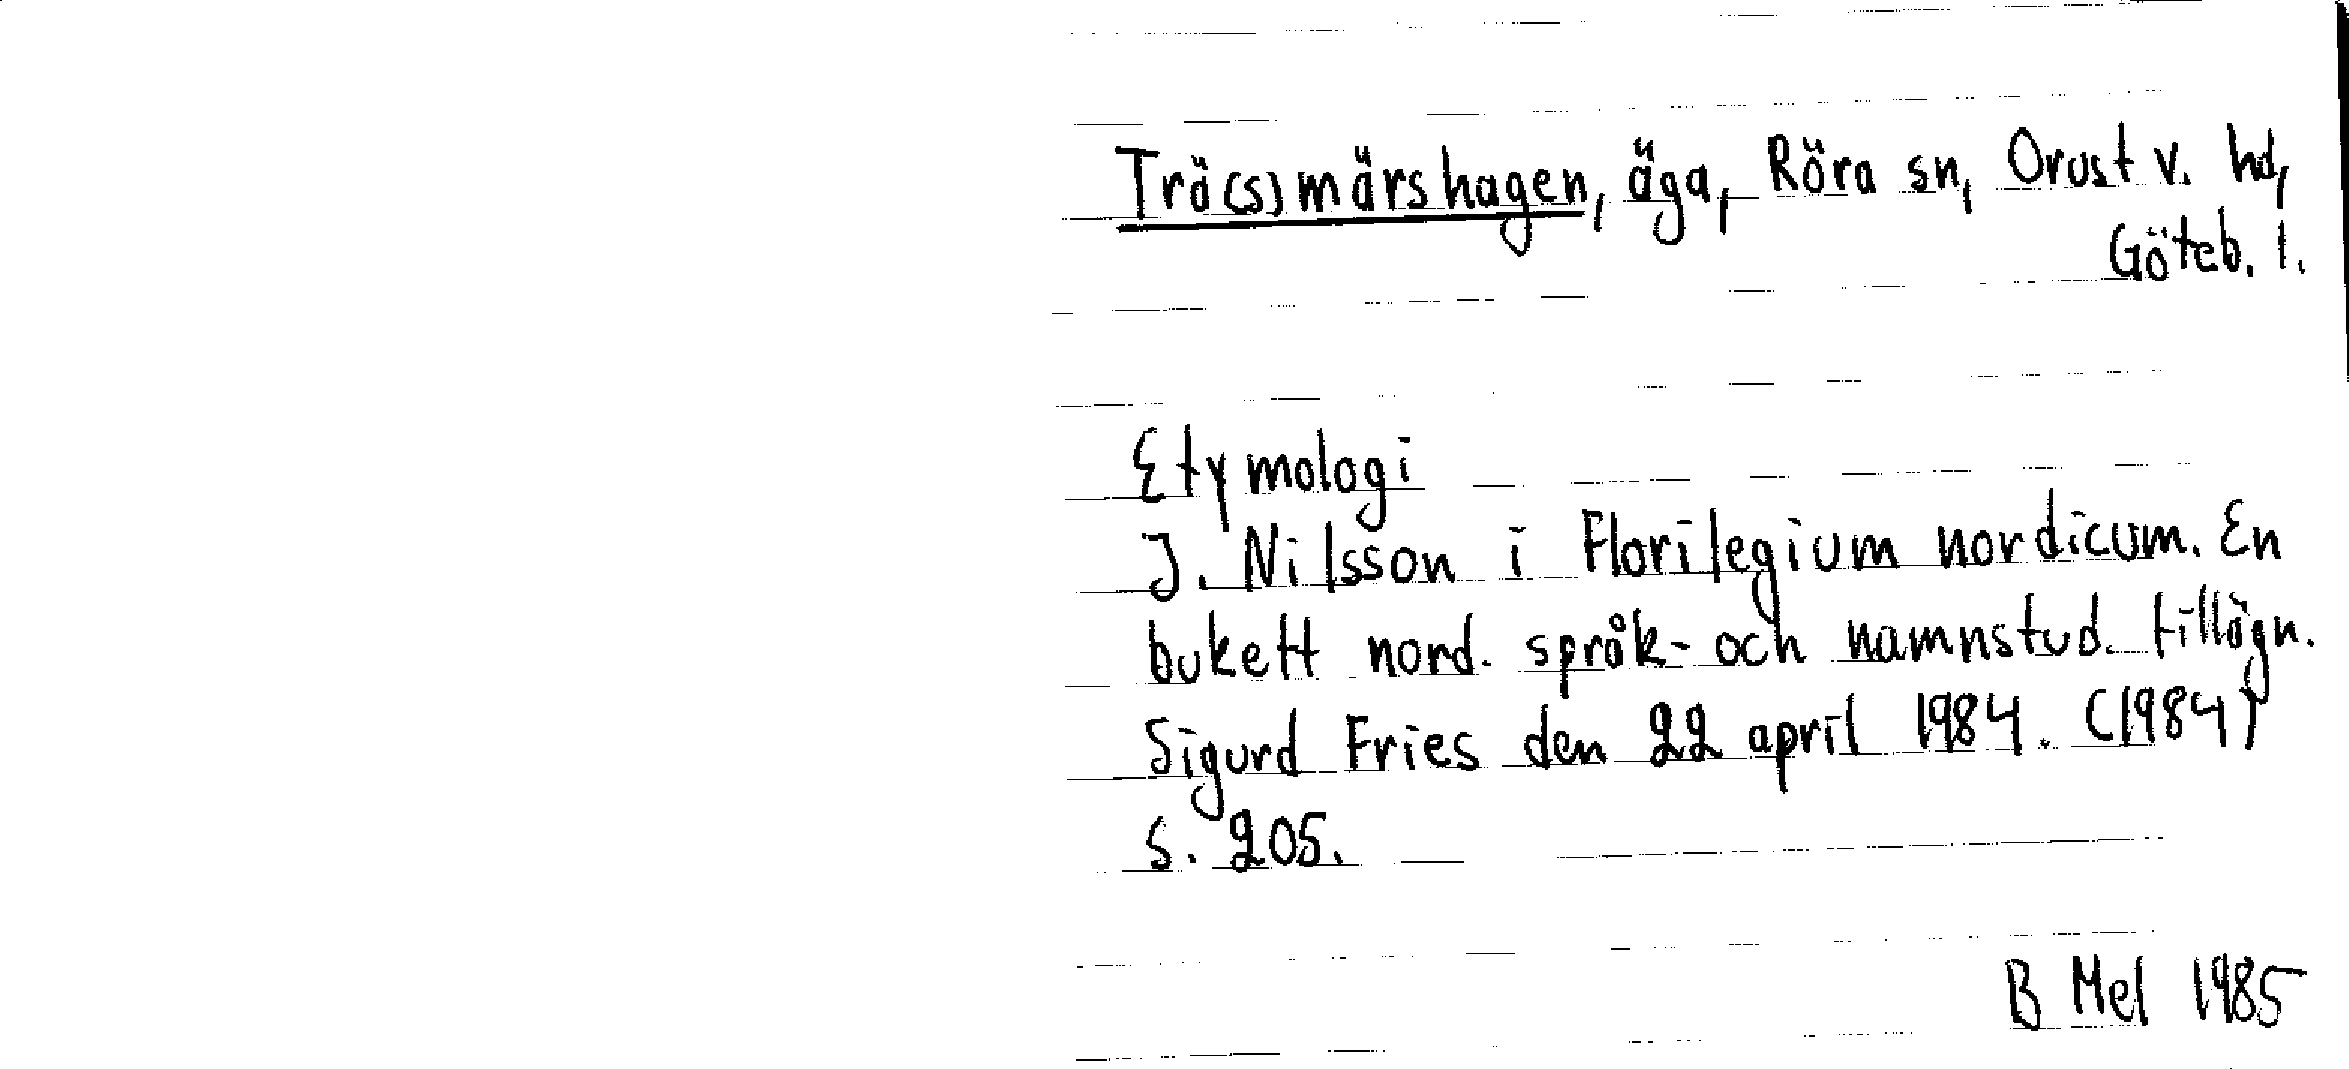 Trä(s)märshagen, äga, Röra sn, Orust v. hd,
Göteb. l.
Etymologi
J. Nilsson i Florilegium nordicum. En
bukett nord. språk- och namnstud. tillägn.
Sigurd Fries den 22 april 1984. (1984)
s. 205.
B Mel 1985